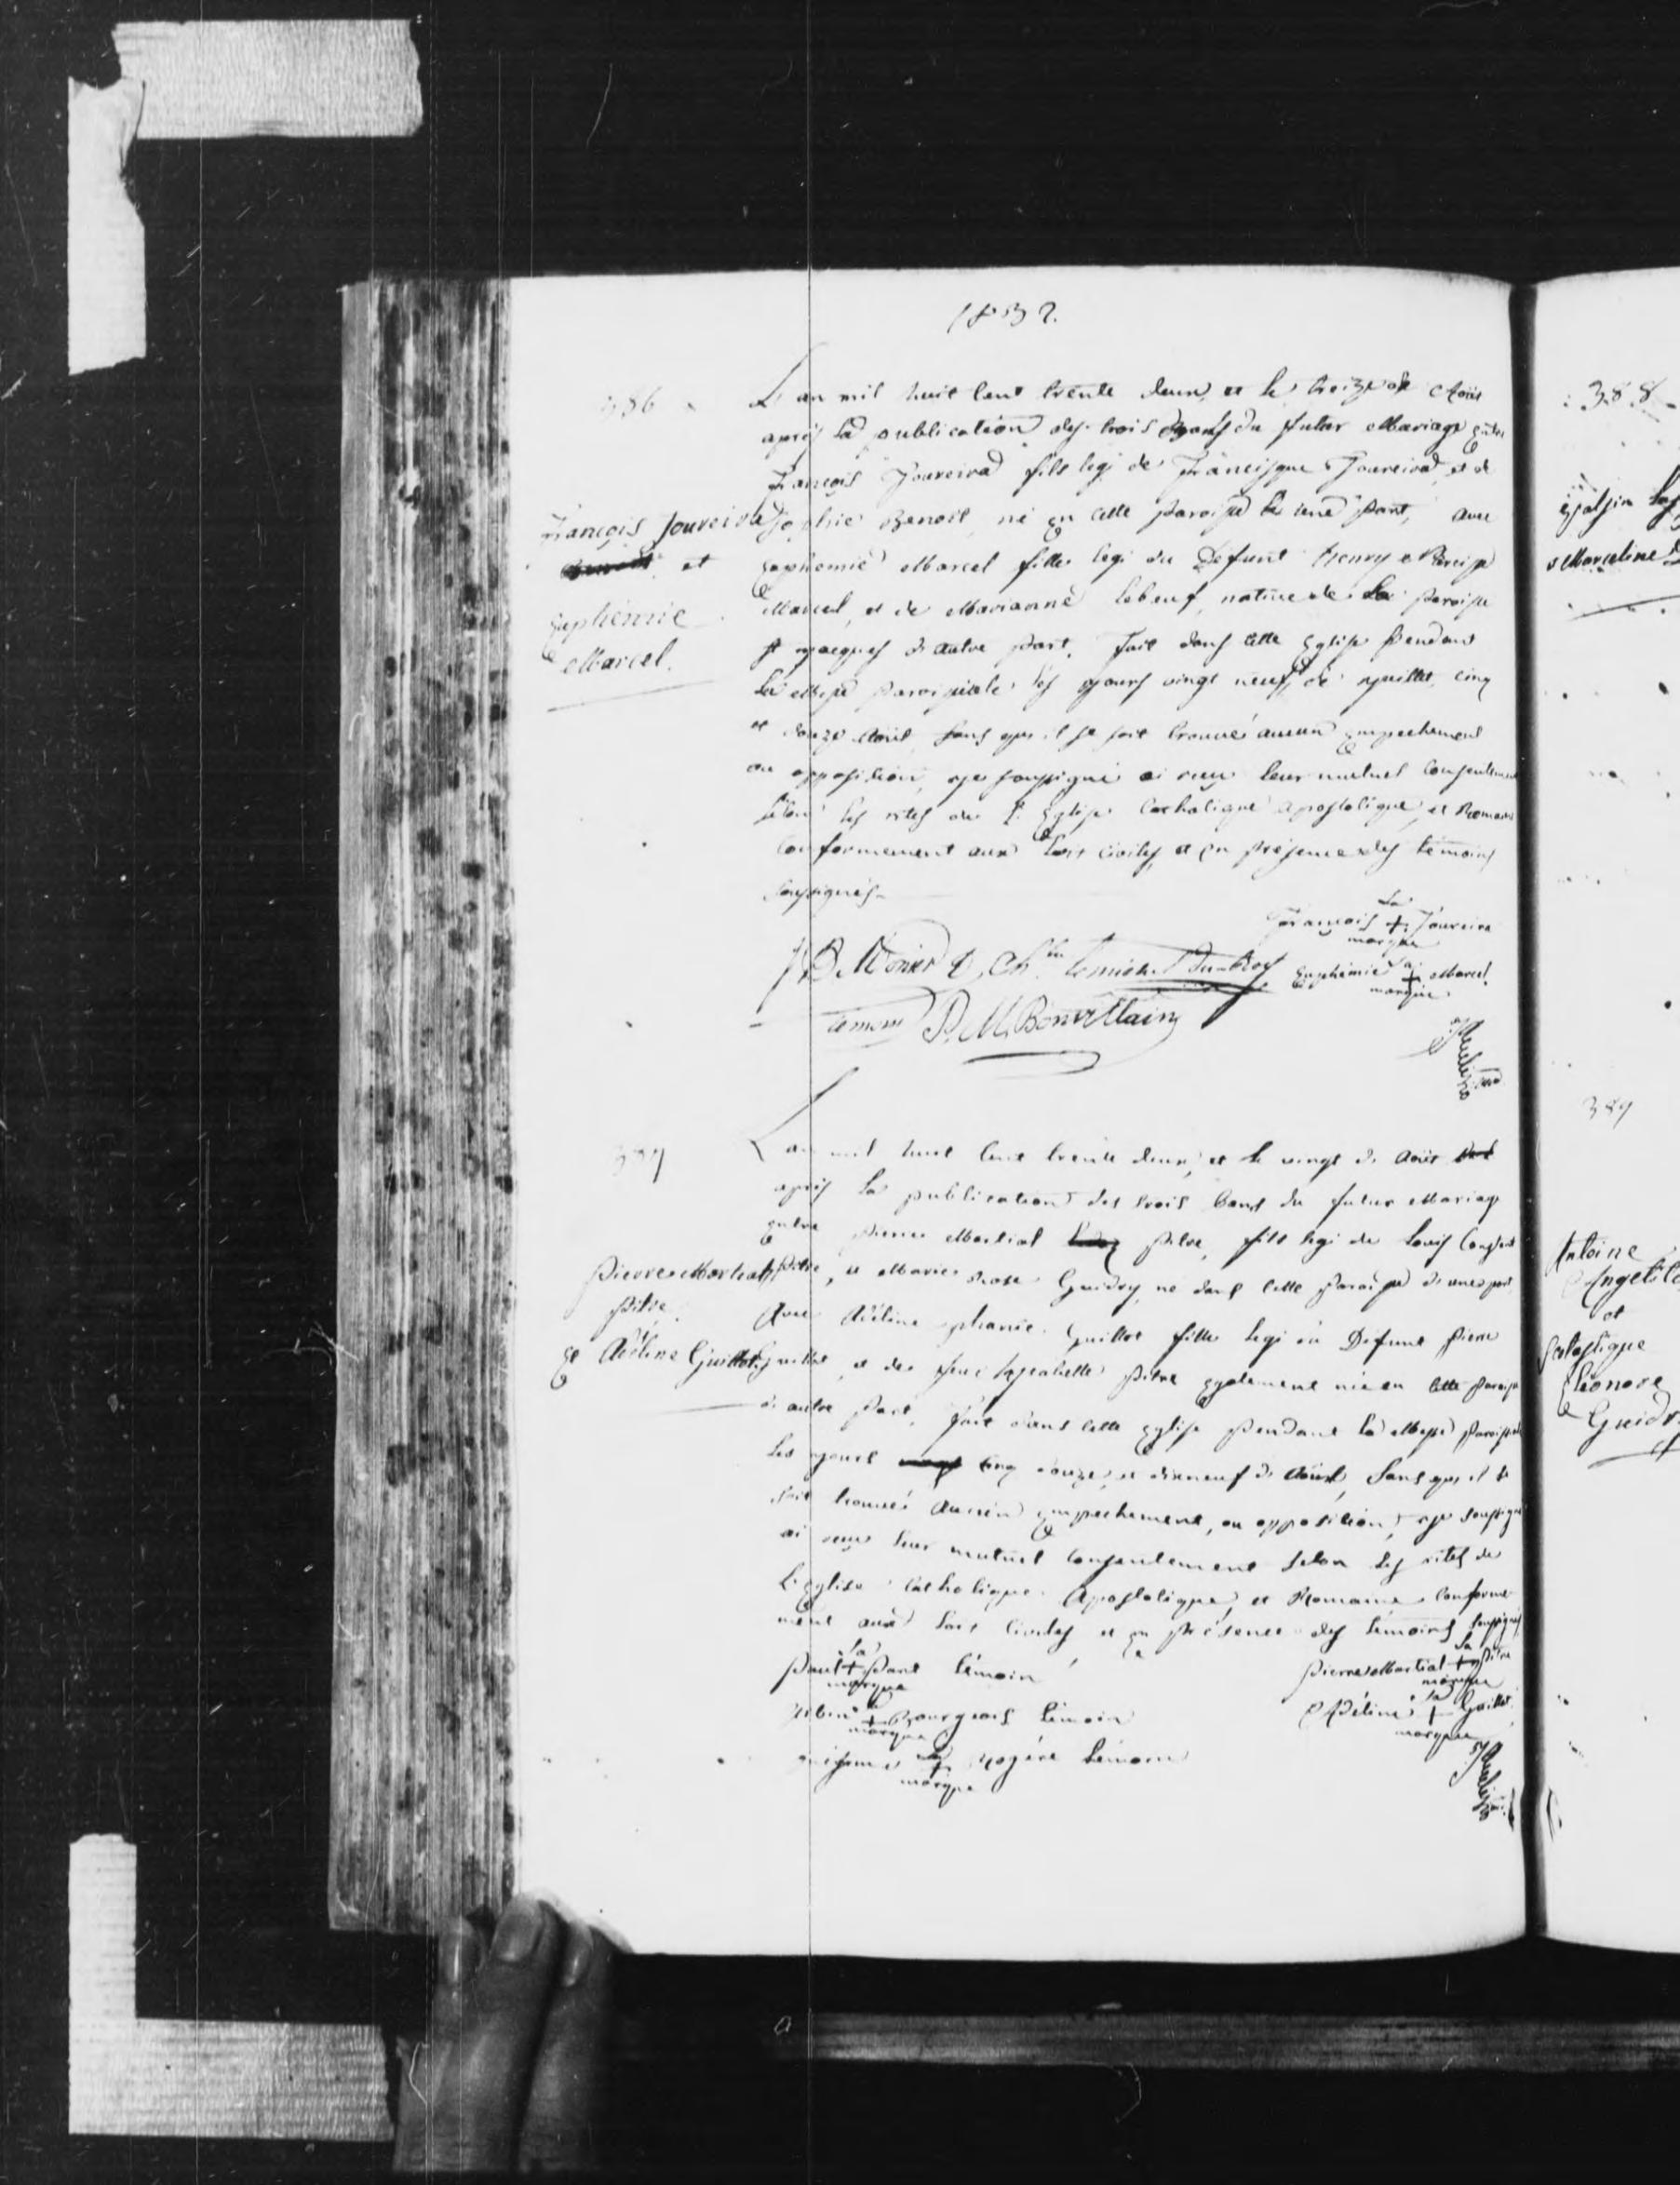 1832.
386
L'an mil huit cent trente deux, et le treize de Août
après la publication des trois bans du futur Mariage entre
François Jouveira fils legi de Francisque Jouveira, et de
Sophie Benoit, né en cette Paroisse de une Part, avec
Euphemie Marcel fille legi du Defunt Henry
Marcel, et de Marianne Lebeuf, native de La Paroisse
St Jacques d'autre Part. Fait dans cette Eglise Pendant
La Messe Paroissiale les jours vingt neuf de juillet, cinq
et douze Août, sans que il se soit trouvé aucun empechement
ou opposition, je soussigné ai reçu leur mutuel consentement
selon les rites de l'Eglise Catholique Apostolique, et Romaine
conformement aux Lois civiles, et en présence des témoins
soussignés
François Jouveira
et
Euphémie
Marcel.
François la + marque Jouveira
Euphémie la + marque Marcel.
temoin P. M. Bonvillain
387
L'an mil huit cent trente deux, et le vingt de Août
après la publication des trois bans du futur Mariage
entre Pierre Martial Pitre, fils legi de Louis
Pitre, et Marie Rose Guidry, né dans cette Paroisse de une part
Avec Adéline phanie Guillot fille legi du Defunt Pierre
Guillot, et de Isabelle Pitre egalement née en cette Paroisse
d'autre Part. Fait dans cette Eglise Pendant la Messe Paroissiale
les jours cinq douze, et dixneuf de Août, sans que il se
soit trouvé aucun empechement, ou opposition, je soussigné
ai reçu leur mutuel consentement selon les rites de
L'Eglise Catholique Apostolique, et Romaine conforme-
ment aux Lois Civiles, et en présence des témoins soussignés
Pierre Martial
Pitre
Et Adéline Guillot
Paul la + marque temoin
Pierre Martial la + marque Pitre
la + marque Bourgeois temoin
Adéline la + marque Guillot
la + marque temoin
388
Marceline
389
Antoine
et
Scolastique
Eléonore
Guidry